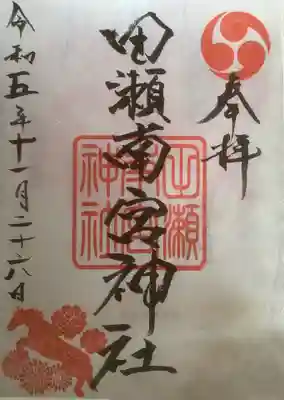 奉拝
田瀬南宮神社
令和五年十一月二十六日
田瀬
南宮
神社